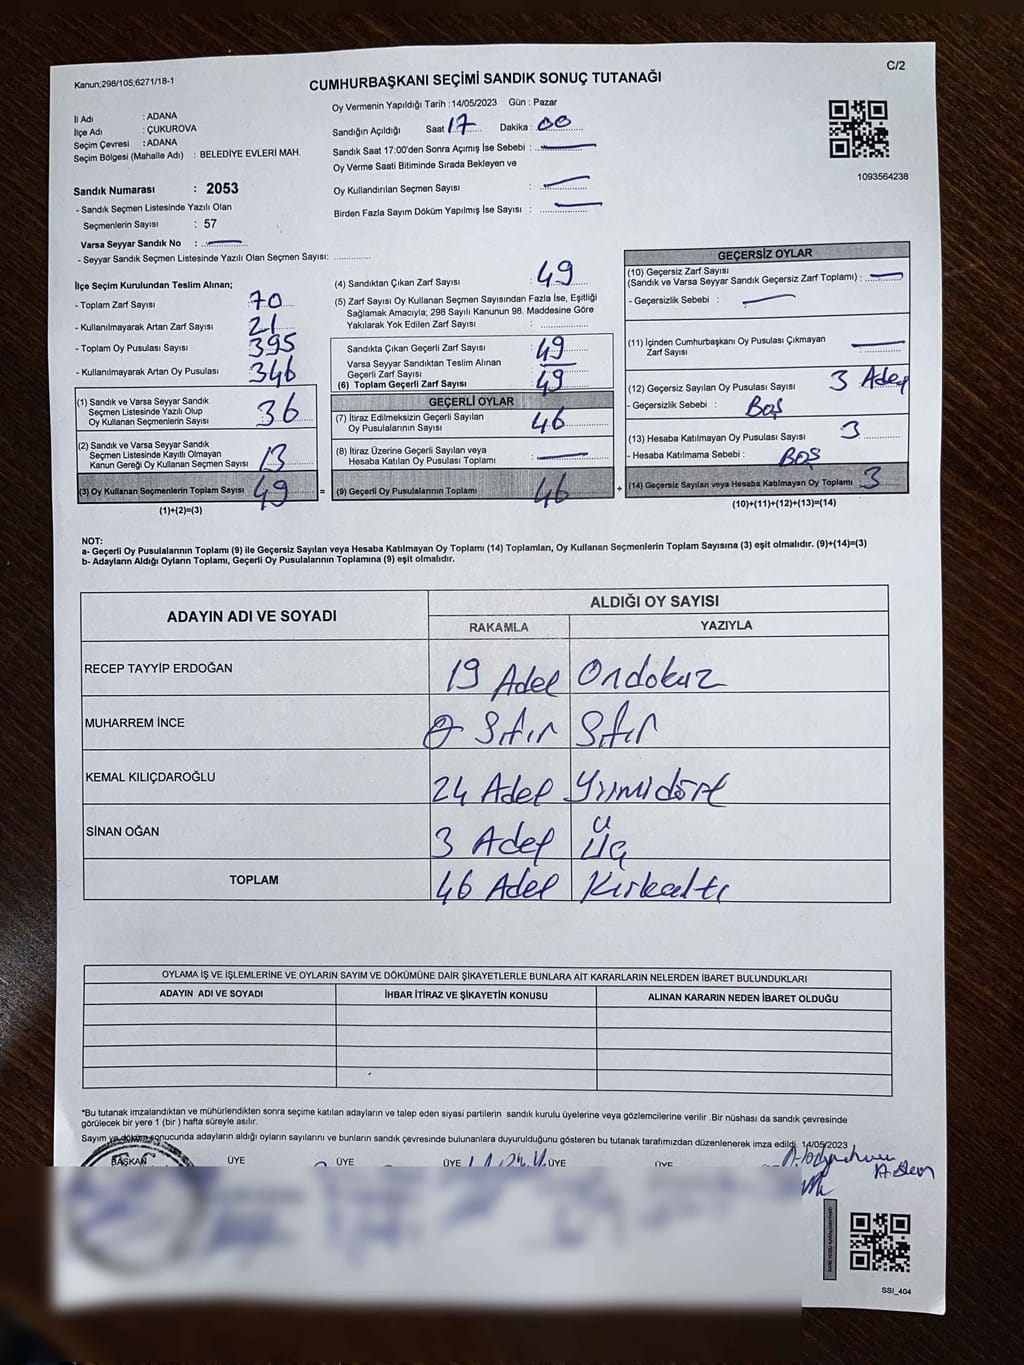 Kanun;298/105;6271/18-1
C/2
CUMHURBAŞKANI SEÇİMİ SANDIK SONUÇ TUTANAĞI
İl Adı : ADANA
İlçe Adı : ÇUKUROVA
Seçim Çevresi : ADANA
Seçim Bölgesi (Mahalle Adı) : BELEDİYE EVLERİ MAH.
Oy Vermenin Yapıldığı Tarih : 14/05/2023 Gün : Pazar
Sandığın Açıldığı Saat 17 Dakika : 00
Sandık Saat 17:00'den Sonra Açımış İse Sebebi :
Oy Verme Saati Bitiminde Sırada Bekleyen ve
Oy Kullandırılan Seçmen Sayısı :
Birden Fazla Sayım Döküm Yapılmış İse Sayısı :
1093564238
Sandık Numarası : 2053
- Sandık Seçmen Listesinde Yazılı Olan
Seçmenlerin Sayısı : 57
Varsa Seyyar Sandık No :
- Seyyar Sandık Seçmen Listesinde Yazılı Olan Seçmen Sayısı:
İlçe Seçim Kurulundan Teslim Alınan;
- Toplam Zarf Sayısı 70
- Kullanılmayarak Artan Zarf Sayısı 21
- Toplam Oy Pusulası Sayısı 395
- Kullanılmayarak Artan Oy Pusulası 346
(1) Sandık ve Varsa Seyyar Sandık
Seçmen Listesinde Yazılı Olup
Oy Kullanan Seçmenlerin Sayısı 36
(2) Sandık ve Varsa Seyyar Sandık
Seçmen Listesinde Kayıtlı Olmayan
Kanun Gereği Oy Kullanan Seçmen Sayısı 13
(3) Oy Kullanan Seçmenlerin Toplam Sayısı 49
(1)+(2)=(3)
(4) Sandıktan Çıkan Zarf Sayısı 49
(5) Zarf Sayısı Oy Kullanan Seçmen Sayısından Fazla İse, Eşitliği
Sağlamak Amacıyla; 298 Sayılı Kanunun 98. Maddesine Göre
Yakılarak Yok Edilen Zarf Sayısı :
Sandıkta Çıkan Geçerli Zarf Sayısı 49
Varsa Seyyar Sandıktan Teslim Alınan
Geçerli Zarf Sayısı
(6) Toplam Geçerli Zarf Sayısı 49
GEÇERLİ OYLAR
(7) İtiraz Edilmeksizin Geçerli Sayılan
Oy Pusulalarının Sayısı 46
(8) İtiraz Üzerine Geçerli Sayılan veya
Hesaba Katılan Oy Pusulası Toplamı
= (9) Geçerli Oy Pusulalarının Toplamı 46 +
GEÇERSİZ OYLAR
(10) Geçersiz Zarf Sayısı
(Sandık ve Varsa Seyyar Sandık Geçersiz Zarf Toplamı) :
- Geçersizlik Sebebi :
(11) İçinden Cumhurbaşkanı Oy Pusulası Çıkmayan
Zarf Sayısı
(12) Geçersiz Sayılan Oy Pusulası Sayısı 3 Adep
- Geçersizlik Sebebi : Boş
(13) Hesaba Katılmayan Oy Pusulası Sayısı 3
- Hesaba Katılmama Sebebi : BOŞ
(14) Geçersiz Sayılan veya Hesaba Katılmayan Oy Toplamı 3
(10)+(11)+(12)+(13)=(14)
NOT:
a- Geçerli Oy Pusulalarının Toplamı (9) ile Geçersiz Sayılan veya Hesaba Katılmayan Oy Toplamı (14) Toplamları, Oy Kullanan Seçmenlerin Toplam Sayısına (3) eşit olmalıdır. (9)+(14)=(3)
b- Adayların Aldığı Oyların Toplamı, Geçerli Oy Pusulalarının Toplamına (9) eşit olmalıdır.
ADAYIN ADI VE SOYADI ALDIĞI OY SAYISI
RAKAMLA YAZIYLA
RECEP TAYYİP ERDOĞAN 19 Adel Ondokuz
MUHARREM İNCE 0 Sıfır Sıfır
KEMAL KILIÇDAROĞLU 24 Adel Yirmidört
SİNAN OĞAN 3 Adep Üç
TOPLAM 46 Adel Kırkaltı
OYLAMA İŞ VE İŞLEMLERİNE VE OYLARIN SAYIM VE DÖKÜMÜNE DAİR ŞİKAYETLERLE BUNLARA AİT KARARLARIN NELERDEN İBARET BULUNDUKLARI
ADAYIN ADI VE SOYADI İHBAR İTİRAZ VE ŞİKAYETİN KONUSU ALINAN KARARIN NEDEN İBARET OLDUĞU
*Bu tutanak imzalandıktan ve mühürlendikten sonra seçime katılan adayların ve talep eden siyasi partilerin sandık kurulu üyelerine veya gözlemcilerine verilir .Bir nüshası da sandık çevresinde
görülecek bir yere 1 (bir ) hafta süreyle asılır.
Sayım ve döküm sonucunda adayların aldığı oyların sayılarını ve bunların sandık çevresinde bulunanlara duyurulduğunu gösteren bu tutanak tarafımızdan düzenlenerek imza edildi. 14/05/2023
BAŞKAN ÜYE ÜYE ÜYE ÜYE ÜYE
SSI_404